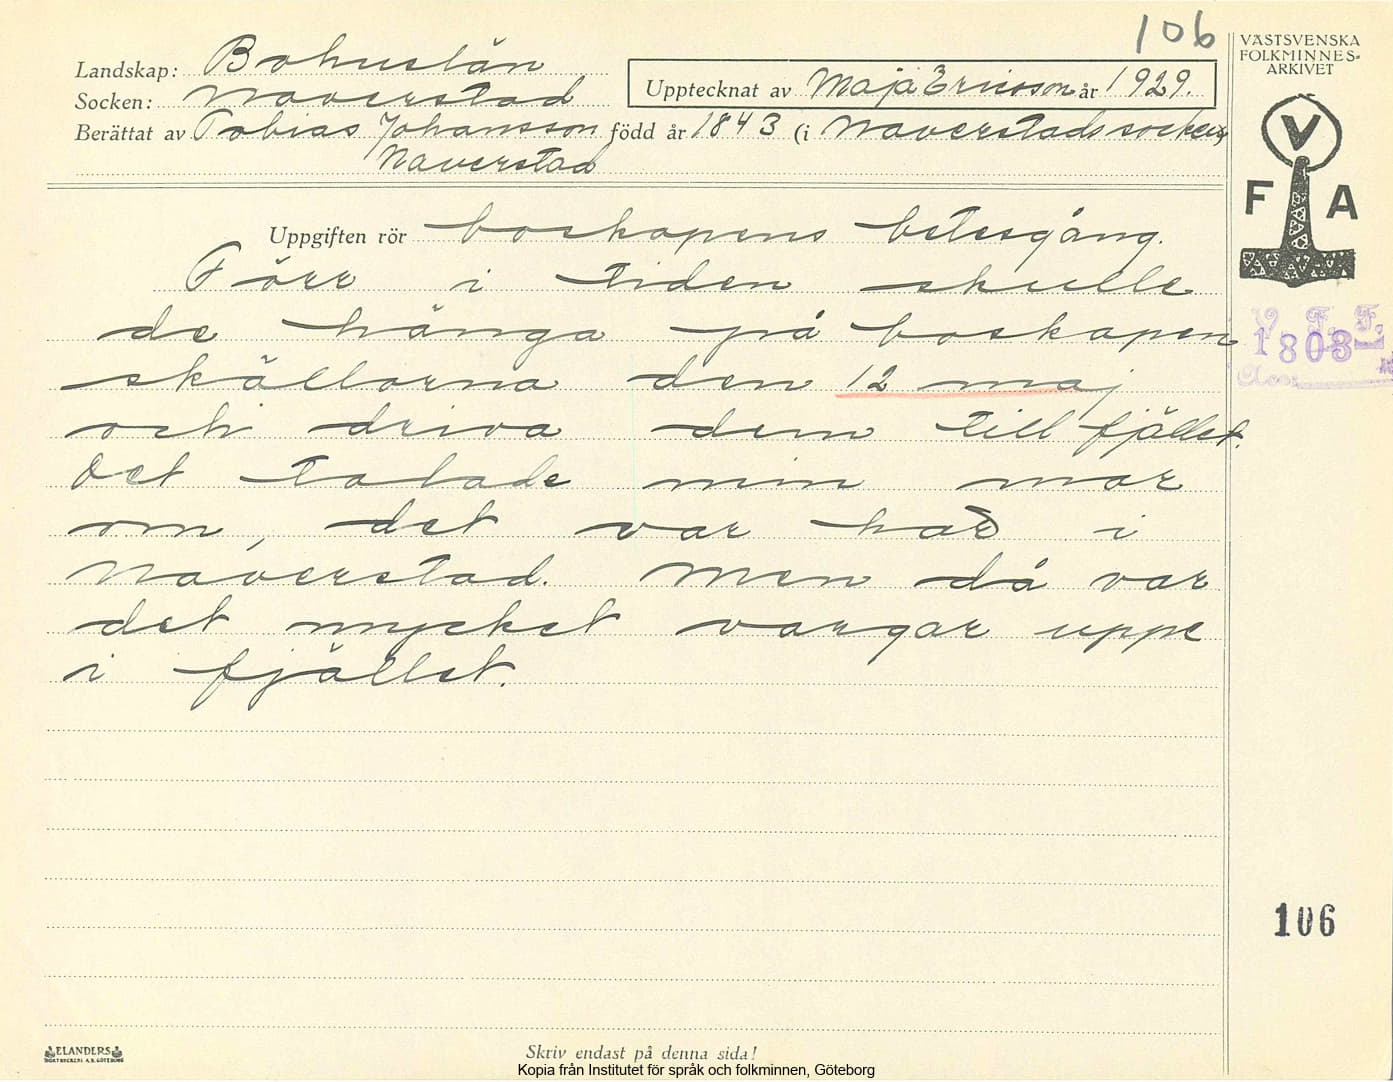 106
VÄSTSVENSKA
FOLKMINNES-
ARKIVET
Landskap: Bohuslän
Socken: Naverstad
Upptecknat av Maja Ericsson år 1929.
Berättat av Tobias Johansson född år 1843 (i Naverstads socken)
Naverstad
V
F A
Uppgiften rör boskapens betesgång.
Förr i tiden skulle
de hänga på boskapen
skällorna den 12 maj
och driva dem till fjället.
Det talade min mor
om, det var här i
Naverstad. Men då var
det mycket vargar uppe
i fjället.
V. F. F.
1803
Acc.
106
ELANDERS
BOKTRYCKERI A.B. GÖTEBORG
Skriv endast på denna sida!
Kopia från Institutet för språk och folkminnen, Göteborg